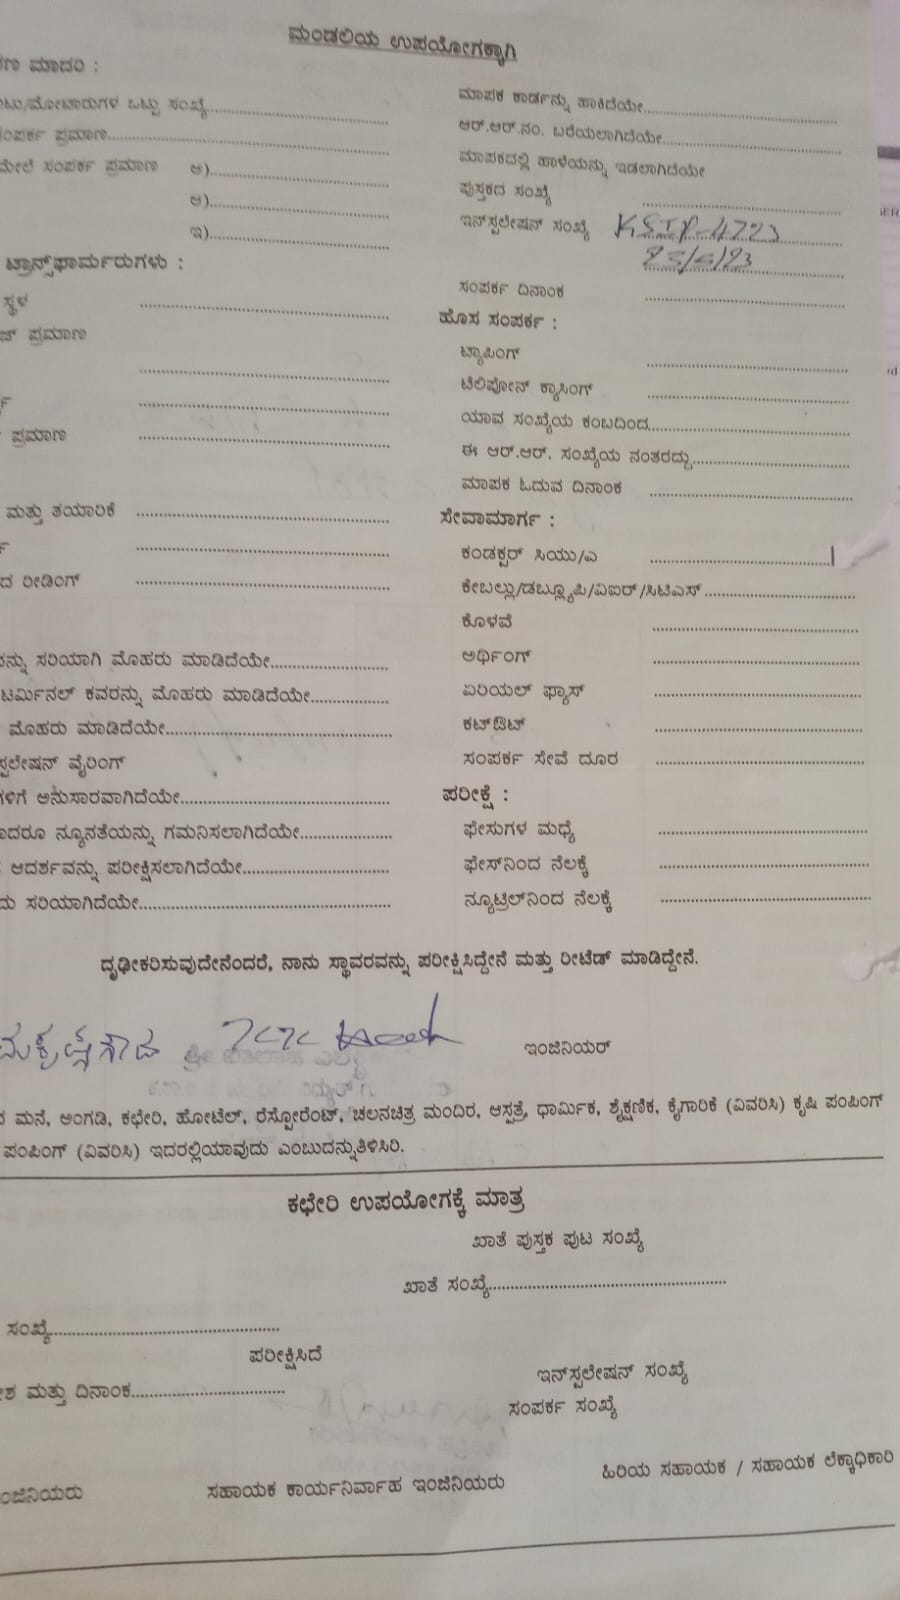 ಮಂಡಲಿಯ ಉಪಯೋಗಕ್ಕಾಗಿ
ಮಾದರಿ :
ಮೋಟಾರುಗಳ ಒಟ್ಟು ಸಂಖ್ಯೆ
ಸಂಪರ್ಕ ಪ್ರಮಾಣ
ಮೇಲೆ ಸಂಪರ್ಕ ಪ್ರಮಾಣ ಅ)
ಆ)
ಇ)
ಟ್ರಾನ್ಸ್‌ಫಾರ್ಮರುಗಳು :
ಸ್ಥಳ
ಪ್ರಮಾಣ
ಪ್ರಮಾಣ
ಮತ್ತು ತಯಾರಿಕೆ
ರೀಡಿಂಗ್
ಸರಿಯಾಗಿ ಮೊಹರು ಮಾಡಿದೆಯೇ
ಟರ್ಮಿನಲ್ ಕವರನ್ನು ಮೊಹರು ಮಾಡಿದೆಯೇ
ಮೊಹರು ಮಾಡಿದೆಯೇ
ವೈರಿಂಗ್
ಅನುಸಾರವಾಗಿದೆಯೇ
ನ್ಯೂನತೆಯನ್ನು ಗಮನಿಸಲಾಗಿದೆಯೇ
ಆದರ್ಶವನ್ನು ಪರೀಕ್ಷಿಸಲಾಗಿದೆಯೇ
ಸರಿಯಾಗಿದೆಯೇ
ಮಾಪಕ ಕಾರ್ಡನ್ನು ಹಾಕಿದೆಯೇ
ಆರ್.ಆರ್.ನಂ. ಬರೆಯಲಾಗಿದೆಯೇ
ಮಾಪಕದಲ್ಲಿ ಹಾಳೆಯನ್ನು ಇಡಲಾಗಿದೆಯೇ
ಪುಸ್ತಕದ ಸಂಖ್ಯೆ
ಇನ್‌ಸ್ಪಲೇಷನ್ ಸಂಖ್ಯೆ
ಸಂಪರ್ಕ ದಿನಾಂಕ
ಹೊಸ ಸಂಪರ್ಕ :
ಟ್ಯಾಪಿಂಗ್
ಟೆಲಿಫೋನ್ ಕ್ಯಾಸಿಂಗ್
ಯಾವ ಸಂಖ್ಯೆಯ ಕಂಬದಿಂದ
ಈ ಆರ್.ಆರ್. ಸಂಖ್ಯೆಯ ನಂತರದ್ದು
ಮಾಪಕ ಓದುವ ದಿನಾಂಕ
ಸೇವಾಮಾರ್ಗ :
ಕಂಡಕ್ಟರ್ ಸಿಯು/ಎ
ಕೇಬಲ್ಲು/ಡಬ್ಲ್ಯೂಪಿ/ವಿಐಆರ್/ಸಿಟಿಎಸ್
ಕೊಳವೆ
ಅರ್ಥಿಂಗ್
ಏರಿಯಲ್ ಫ್ಯೂಸ್
ಕಟ್‌ಔಟ್
ಸಂಪರ್ಕ ಸೇವೆ ದೂರ
ಪರೀಕ್ಷೆ :
ಫೇಸುಗಳ ಮಧ್ಯೆ
ಫೇಸ್‌ನಿಂದ ನೆಲಕ್ಕೆ
ನ್ಯೂಟ್ರಿಲ್‌ನಿಂದ ನೆಲಕ್ಕೆ
ದೃಢೀಕರಿಸುವುದೇನೆಂದರೆ, ನಾನು ಸ್ಥಾವರವನ್ನು ಪರೀಕ್ಷಿಸಿದ್ದೇನೆ ಮತ್ತು ರೀಟೆಡ್ ಮಾಡಿದ್ದೇನೆ.
ಇಂಜಿನಿಯರ್
ಮನೆ, ಅಂಗಡಿ, ಕಛೇರಿ, ಹೋಟೆಲ್, ರೆಸ್ಟೋರೆಂಟ್, ಚಲನಚಿತ್ರ ಮಂದಿರ, ಆಸ್ಪತ್ರೆ, ಧಾರ್ಮಿಕ, ಶೈಕ್ಷಣಿಕ, ಕೈಗಾರಿಕೆ (ವಿವರಿಸಿ) ಕೃಷಿ ಪಂಪಿಂಗ್
ಪಂಪಿಂಗ್ (ವಿವರಿಸಿ) ಇದರಲ್ಲಿಯಾವುದು ಎಂಬುದನ್ನುತಿಳಿಸಿರಿ.
ಕಛೇರಿ ಉಪಯೋಗಕ್ಕೆ ಮಾತ್ರ
ಖಾತೆ ಪುಸ್ತಕ ಪುಟ ಸಂಖ್ಯೆ
ಖಾತೆ ಸಂಖ್ಯೆ
ಸಂಖ್ಯೆ
ಪರೀಕ್ಷಿಸಿದೆ
ಮತ್ತು ದಿನಾಂಕ
ಇನ್‌ಸ್ಪಲೇಷನ್ ಸಂಖ್ಯೆ
ಸಂಪರ್ಕ ಸಂಖ್ಯೆ
ಸಹಾಯಕ ಕಾರ್ಯನಿರ್ವಾಹ ಇಂಜಿನಿಯರು
ಹಿರಿಯ ಸಹಾಯಕ / ಸಹಾಯಕ ಲೆಕ್ಕಾಧಿಕಾರಿ